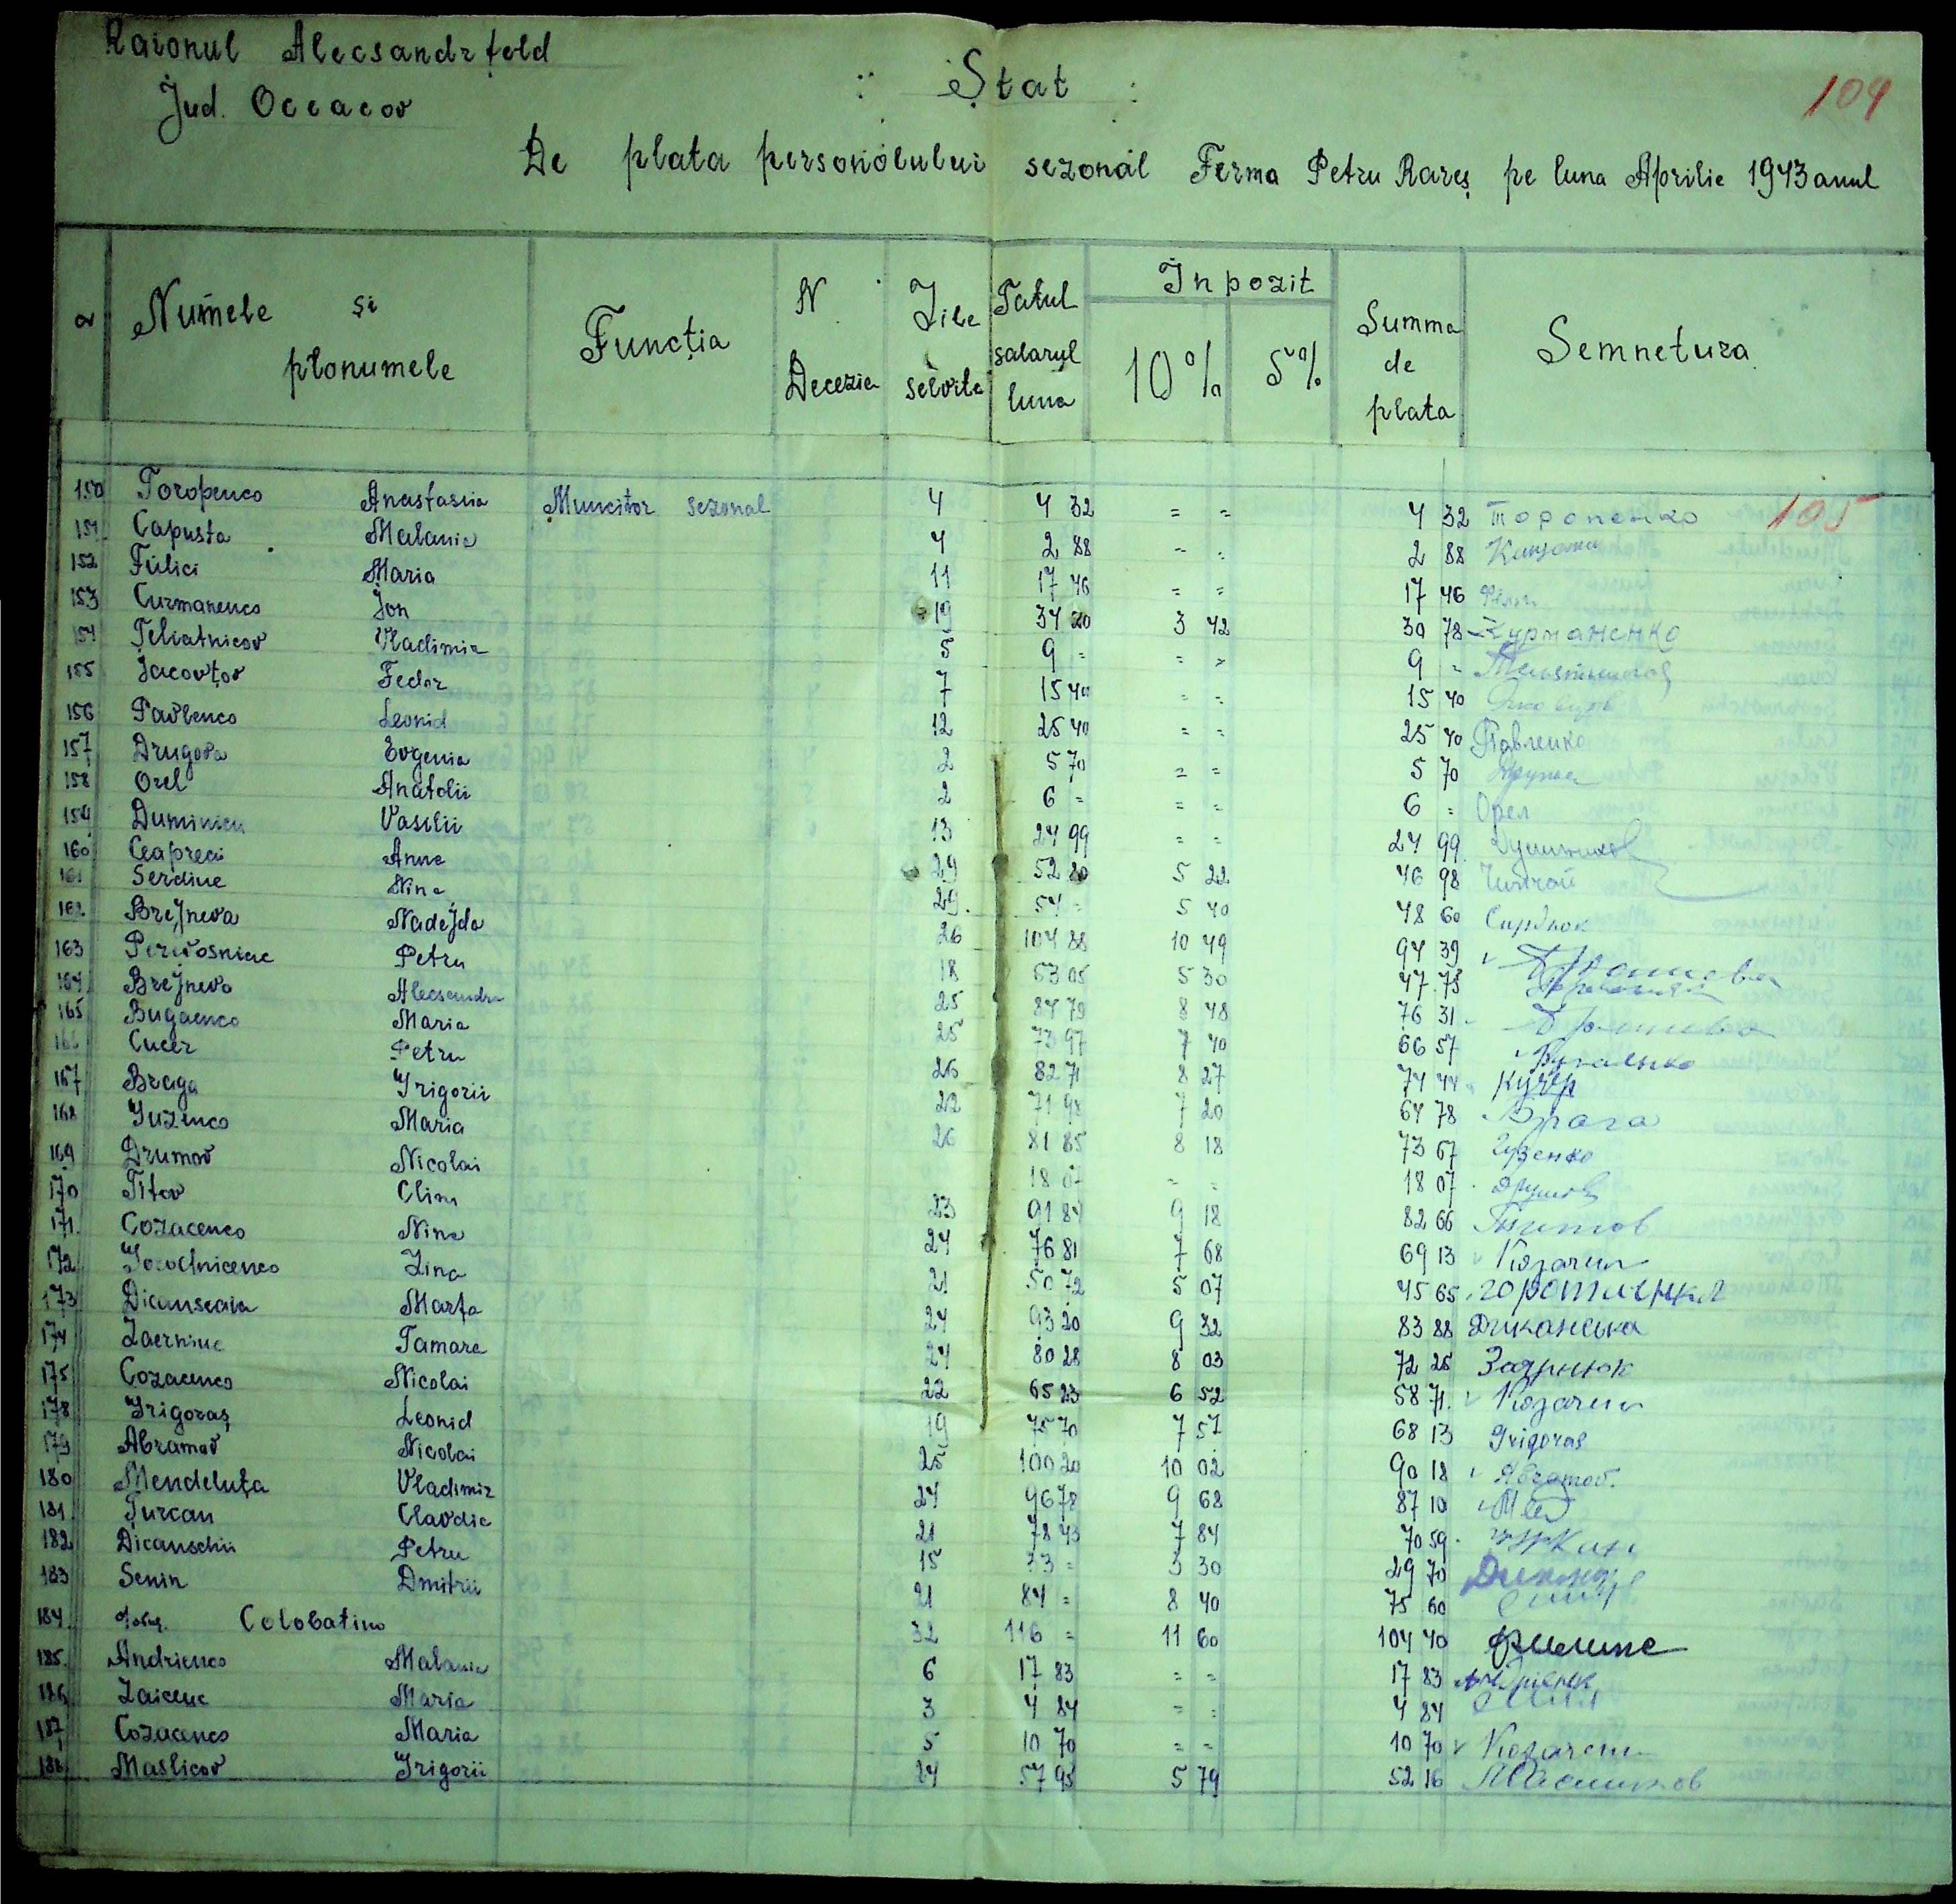 Raionul Alecsandrfeld
Jud. Occacov
Ștat
104
De plata personolului sezonal Ferma Petru Rareș pe luna Aprilie 1943 anul
Numele și plonumele Funcția N Decezia Zile selvite Tatul salaryl luna Inpozit 10% 5% Summa de plata Semnetura
105
150 Toropenco Anastasiia Muncitor sezonal 4 4 32 = = 4 32 Торопенко
151 Capusta Malania 4 2 88 = = 2 88
152 Fulici Maria 11 17 46 = = 17 46
153 Curmanenco Jon 19 34 20 3 42 30 78 Курманенко
154 Țeliatnicov Vladimir 5 9 = = = 9 =
155 Jacovțov Fedor 7 15 40 = = 15 40
156 Pavlenco Leonid 12 25 40 = = 25 40 Павленко
157 Drugova Evgenia 2 5 70 = = 5 70
158 Orel Anatolii 2 6 = = = 6 = Орел
159 Duminicu Vasilii 13 24 99 = = 24 99
160 Ceapreai Anna 29 52 20 5 22 46 98
161 Serdiuc Nina 29 54 = 5 40 48 60 Сирдюк
162 Brejneva Nadejda 26 104 88 10 49 94 39
163 Pervosniac Petru 18 53 05 5 30 47 75
164 Brejneva Alecsandra 25 84 79 8 48 76 31
165 Bugaenco Maria 25 73 97 7 40 66 57
166 Cucer Petru 26 82 71 8 27 74 44 Кучер
167 Braga Grigorii 22 71 98 7 20 64 78 Брага
168 Guzenco Maria 26 81 85 8 18 73 67 Гузенко
169 Drumov Nicolai 18 07 = = 18 07 Друмов
170 Titov Clim 23 91 84 9 18 82 66 Титов
171 Cozacenco Nina 24 76 81 7 68 69 13
172 Gorodnicenco Zina 21 50 72 5 07 45 65
173 Dicanscaia Marfa 24 93 20 9 32 83 88 Диканська
174 Zaerniuc Tamara 24 80 28 8 03 72 25 Заярнюк
175 Cozacenco Nicolai 22 65 23 6 52 58 71
178 Grigoraș Leonid 19 75 70 7 57 68 13 Grigoras
179 Abramov Nicolai 25 100 20 10 02 90 18 Abramov.
180 Mendeluța Vladimir 24 96 78 9 68 87 10
181 Țurcan Clavdia 21 78 43 7 84 70 59
182 Dicanschii Petru 15 33 = 3 30 29 70
183 Senin Dmitrii 21 84 = 8 40 75 60
184 Colobatino 32 116 = 11 60 104 40
185 Andrienco Malania 6 17 83 = = 17 83
186 Zaicenc Maria 3 4 84 = = 4 84
187 Cozacenco Maria 5 10 70 = = 10 70
188 Maslicov Grigorii 24 57 95 5 79 52 16